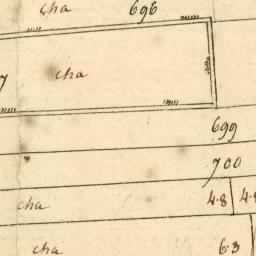 cha 696
7 cha
699
700
cha 4.8 4.8
cha 6.3